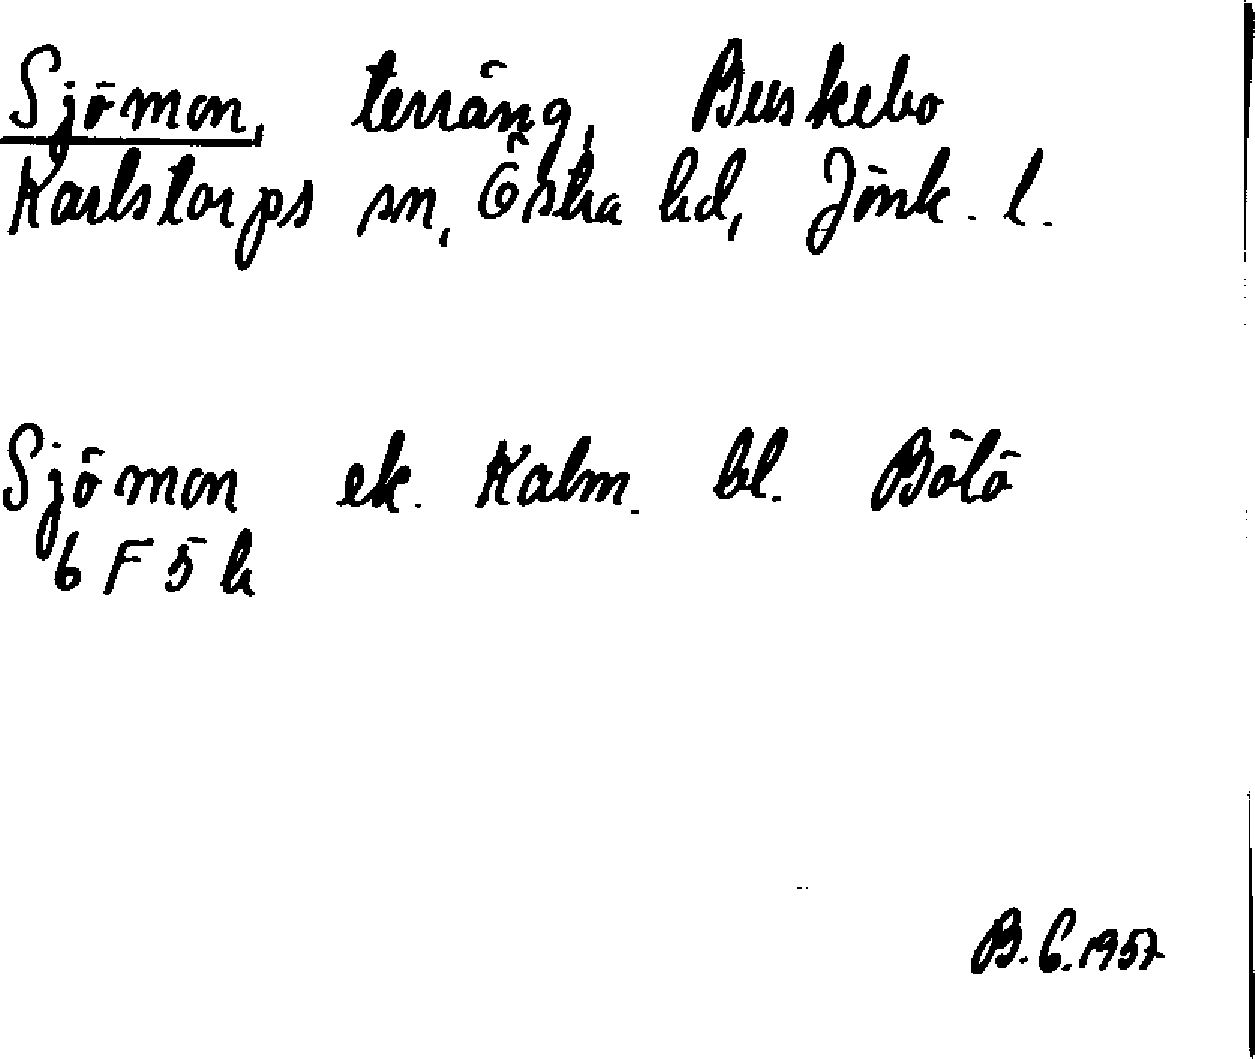 Sjömon, terräng, Buskebo
Karlstorps sn, Östra hd, Jönk. l.
Sjömon ek. Kalm. bl. Bölö
6 F 5 h
B.G. 1957